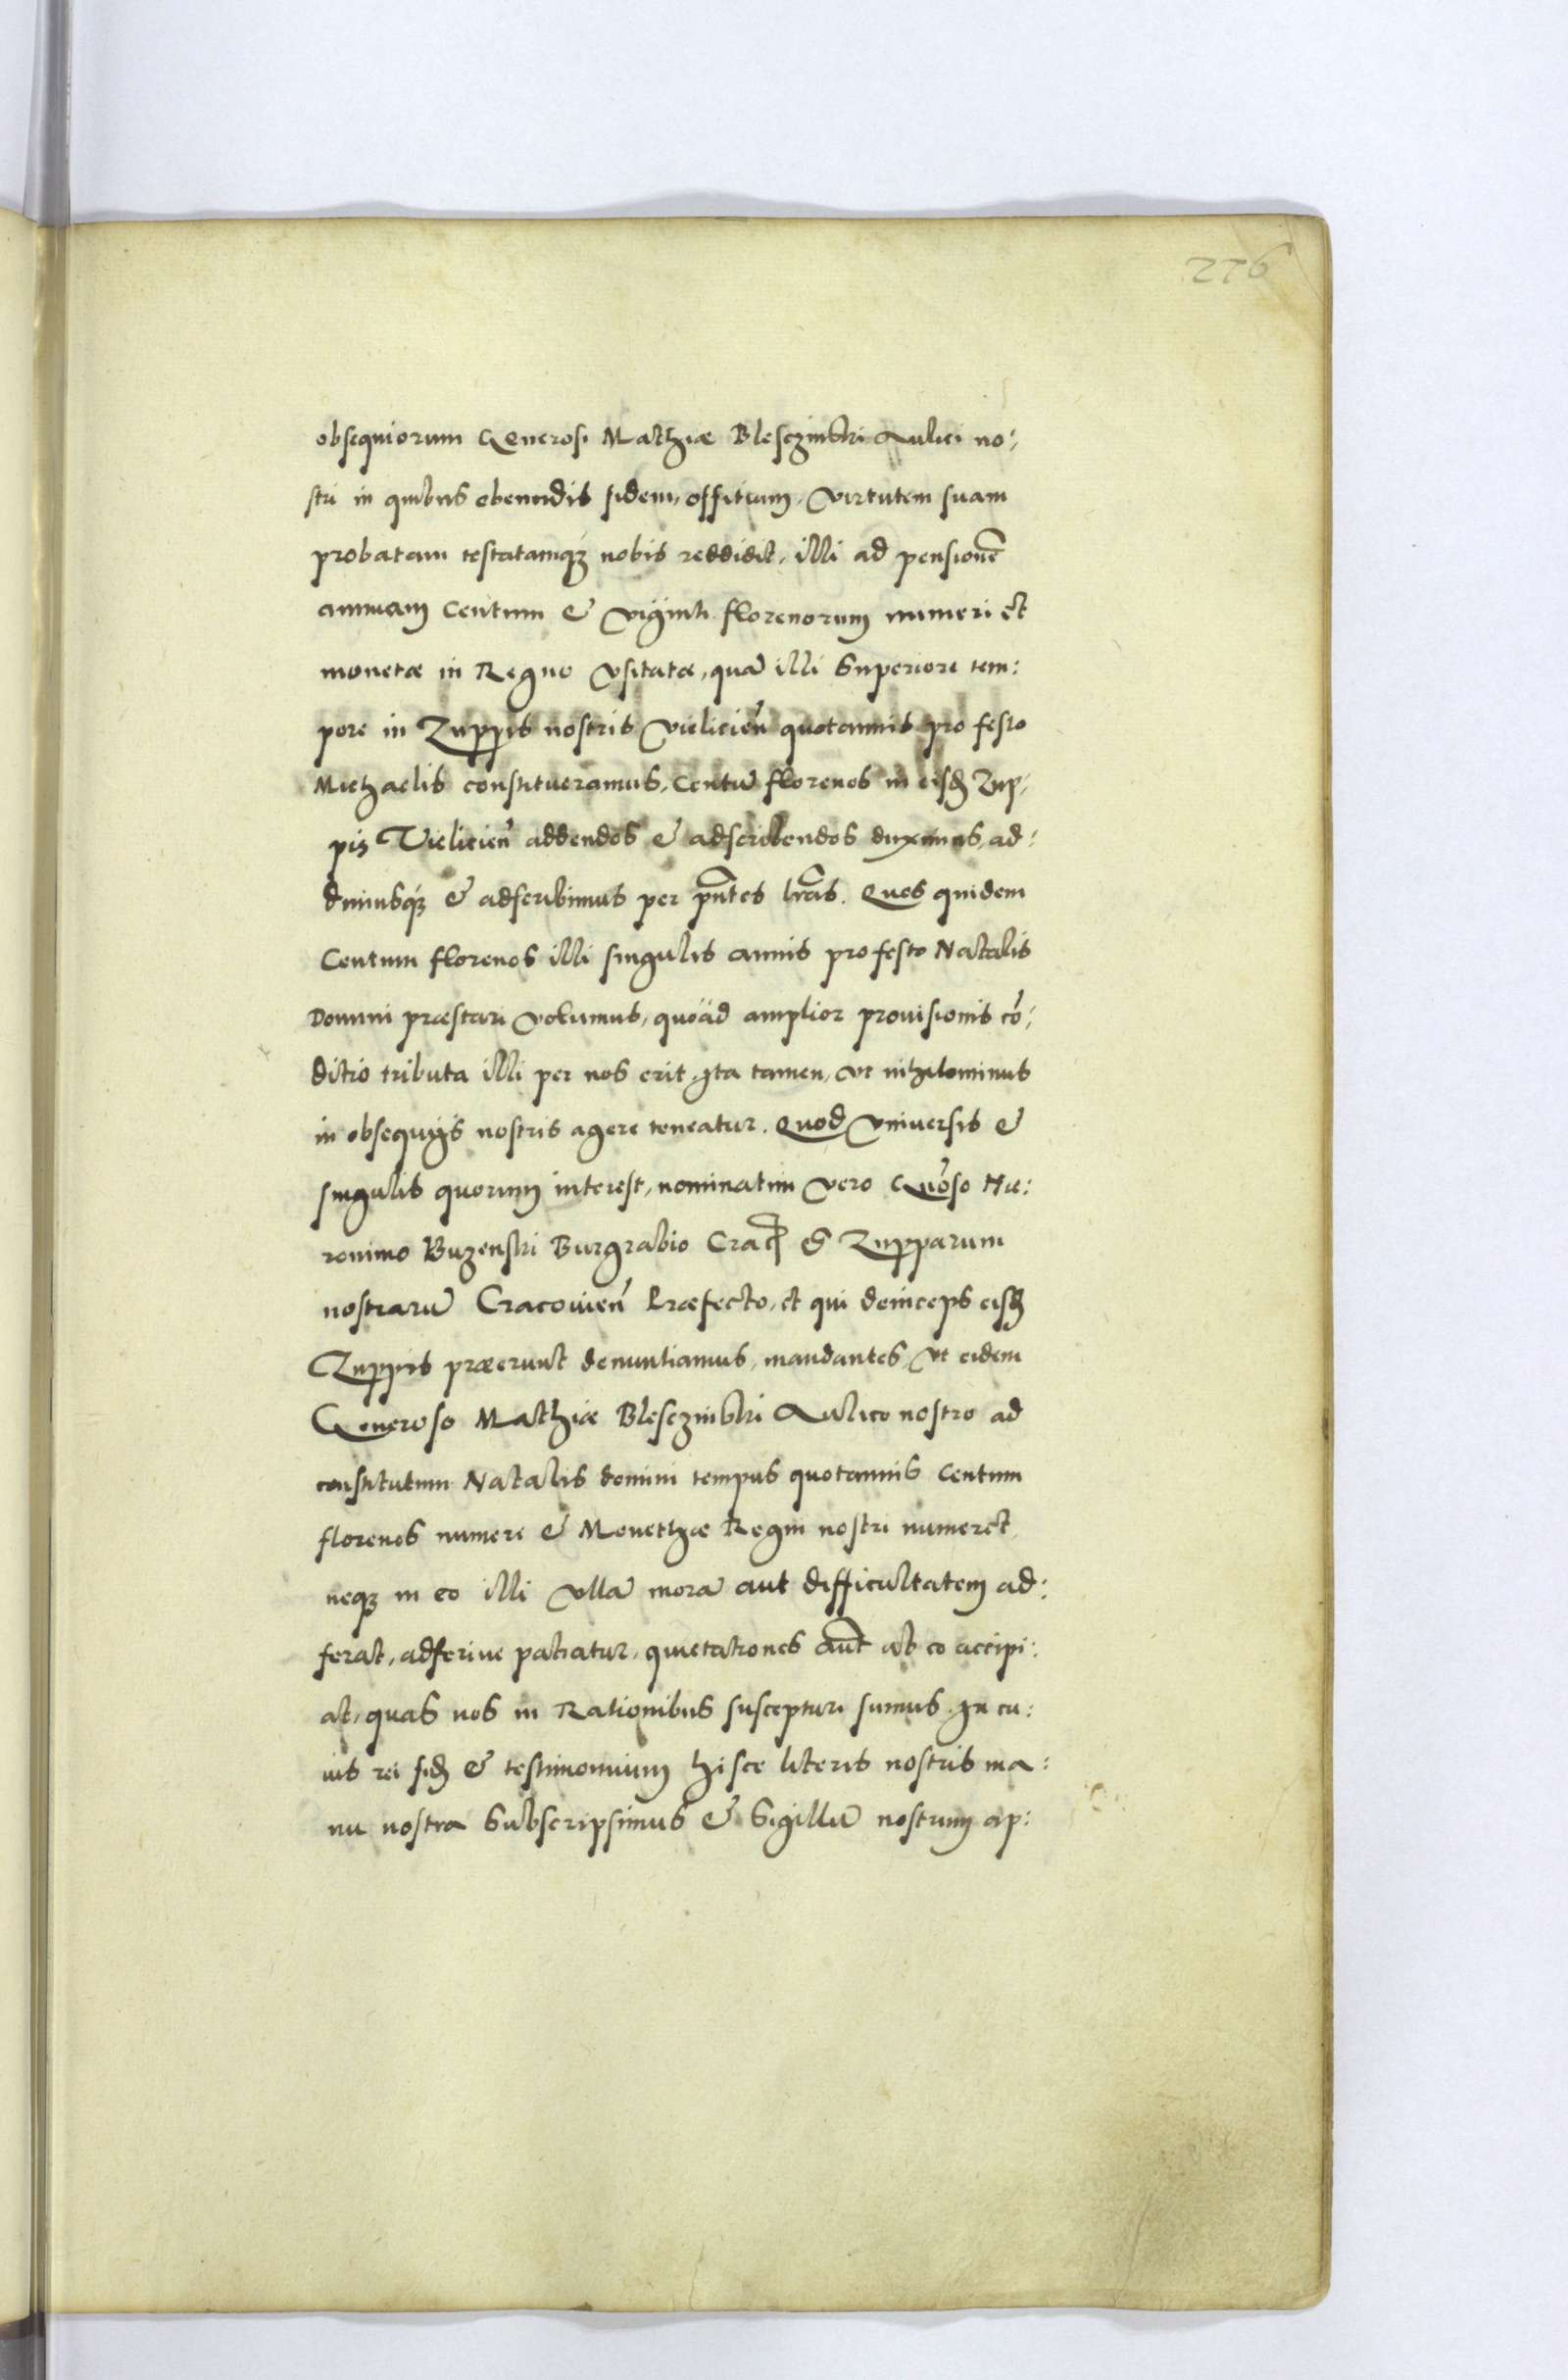 226
obsequiorum Generosi Mathiæ Blesczinski Aulici no:
stri in quibus obeundis fidem, offitium, virtutem suam
probatam testatamq; nobis reddidit, illi ad pensionẽ
annuam Centum & viginti florenorum numeri et
monetæ in Regno vsitatæ, quã illi Superiori tem:
pore in Zuppis nostris Vielicien̄ quotannis pro festo
Michaelis constitueramus, Centũ florenos in eisd Zup:
pis Vielicien̄ addendos & adscribendos duximus, ad:
dimusq; & adscribimus per pn̄tes lr̄as. Quos quidem
Centum florenos illi singulis annis pro festo Natalis
Domini præstari volumus, quoad amplior prouisionis cō:
ditio tributa illi per nos erit, Ita tamen, vt nihilominus
in obsequijs nostris agere teneatur. Quod vniuersis &
singulis quorum interest, nominatim vero Gn̄oso Hie:
ronimo Buzenski Burgrabio Crac & Zupparum
nostrarũ Cracouien̄ Præfecto, et qui deinceps eisd
Zuppis præerunt denuntiamus, mandantes, vt eidem
Generoso Mathiæ Blesczinski Aulico nostro ad
constitutum Natalis domini tempus quotannis Centum
florenos numeri & Monethæ Regni nostri numeret
neq; in eo illi vllã morã aut difficultatem ad:
ferat, adferiue patiatur, quietationes aūt ab eo accipi:
at, quas nos in Rationibus suscepturi sumus. In cu:
ius rei fid & testimonium hisce literis nostris ma:
nu nostra Subscripsimus & Sigillũ nostrum ap: